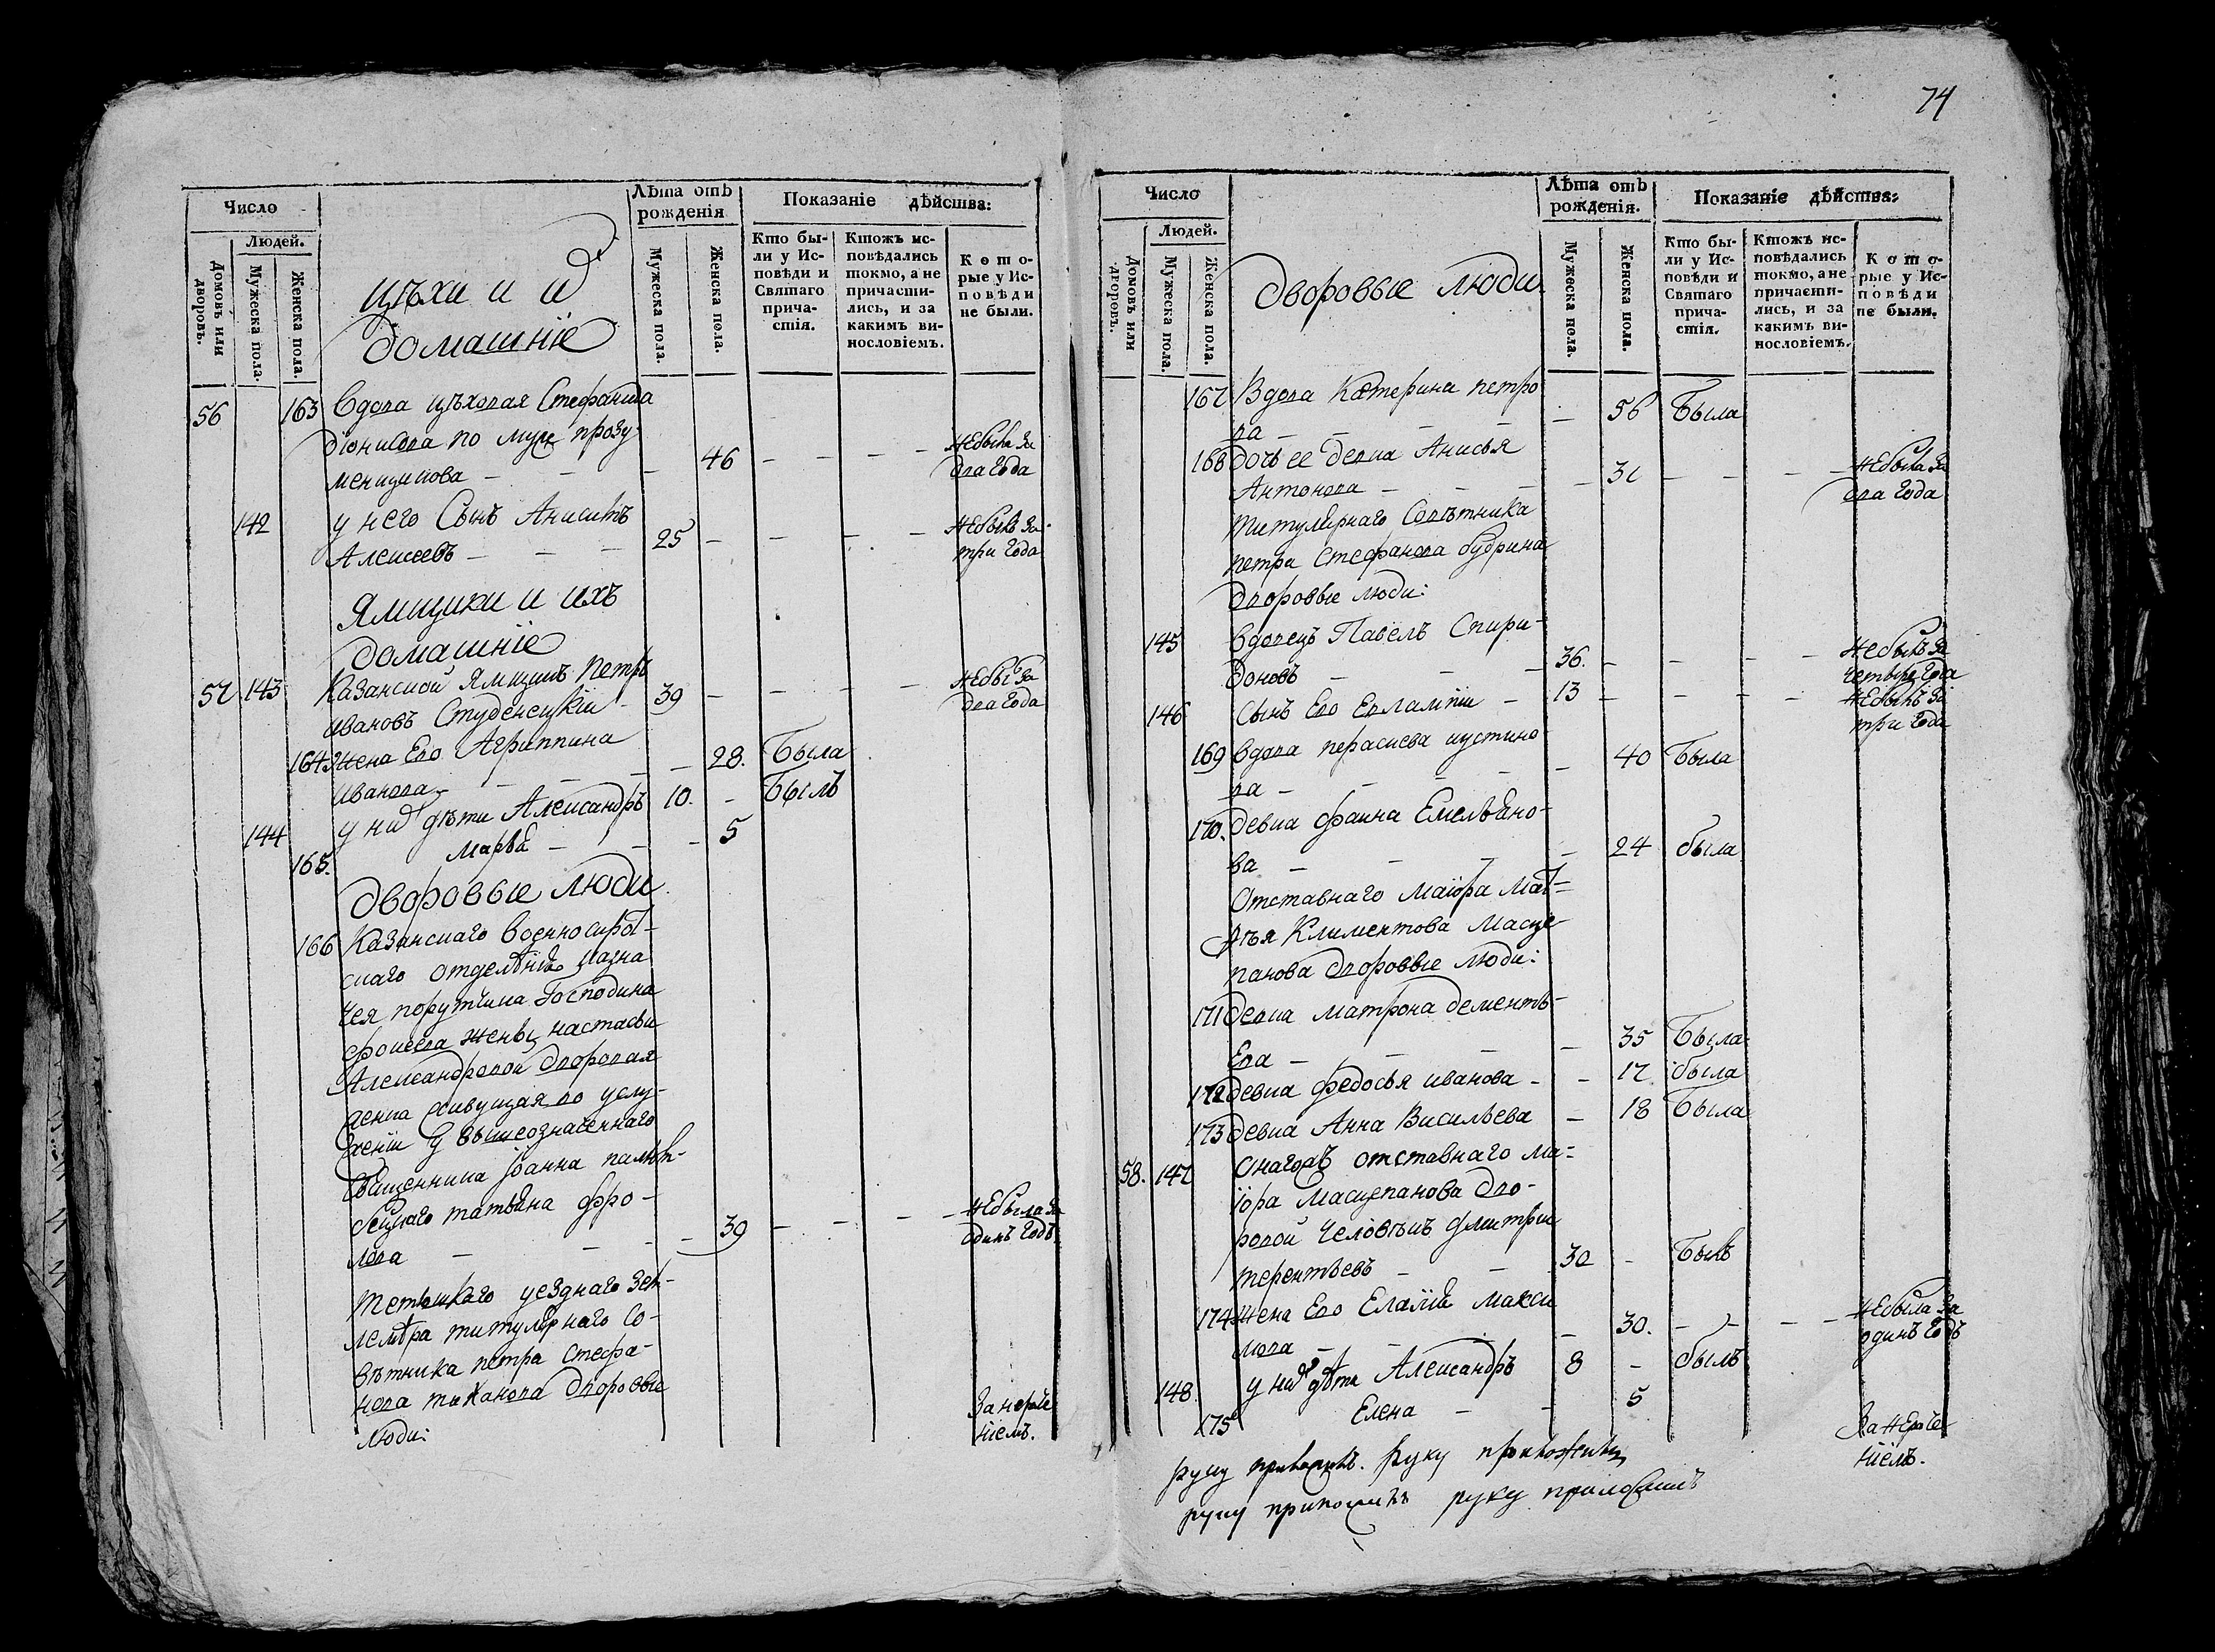 74
Число
Людей.
Домовъ или дворовъ.
Мужеска пола.
Женска пола.
Лѣта отъ рожденія
Мужеска пола.
Женска пола.
Показаніе дѣйства:
Кто бы-
ли у Ис-
повѣди и
Святаго
прича-
стія.
Ктожъ ис-
повѣдались
токмо, а не
причасти-
лись, и за
какимъ ви-
нословіемъ.
Кото-
рые у Ис-
повѣди
не были.
цѣхи и их
домашніе
56 163 вдова цѣховая Стефанида
по муже прозу
менщикова — — 46 — — — — не была за два года
142 у него Сынъ Аникитъ
Алексеевъ — — — 25 — — — — не былъ за три года
Ямщики и ихъ
домашніе
57 143 Казанской Ямщикъ Петръ
ивановъ Студенецкій — 39 — — — — не бы за два года
164 жена Его Агриппина
иванова — — — 28. Была
144 у них дѣти Александръ 10. — Былъ
165. Марѳа — — — 5
дворовые люди
166 Казанскаго военносирот-
скаго отделенія казна
чея порутчика Господина
фокеева жены настасьи
Александровой дворовая
девка живущая во услу-
женіи у вышеозначеннаго
Священника іоанна
татьяна фро-
лова — — — 39 — — — — не была за одинъ годъ.
Тетюшкаго уезднаго зем-
лемѣра титулярнаго со-
вѣтника петра стефа-
нова дворовые
люди:
За нераче
ніемъ.
Число
Людей.
Домовъ или дворовъ.
Мужеска пола.
Женска пола.
Лѣта отъ рожденія.
Мужеска пола.
Женска пола.
Показаніе дѣйства:
Кто бы-
ли у Ис-
повѣди и
Святаго
прича-
стія.
Ктожъ ис-
повѣдались
токмо, а не
причасти-
лись, и за
какимъ ви-
нословіемъ.
Кото-
рые у Ис-
повѣди
не были.
дворовые люди
167 Вдова Катерина петро
ва — — — — 56 Была
168 дочь ее девка Анисья
Антонова — — — — 37 — — — — не была за два года
титулярнаго Совѣтника
петра Стефанова
дворовые люди:
145 вдовецъ Павелъ Спири-
доновъ — — — 36. — — — — не былъ за четыре года
146 сынъ Его Евлампіи — 13 — — — — не былъ за три года
169 вдова параскева иустино
ва — — — — 40 Была
170. девка фаина Емельяно-
ва — — — — 24 была
Отставнаго маіора Мат-
ѳѣя Климентова Масце
панова дворовые люди:
171 девка матрона дементь-
ева — — — 35 Была
172 девка федосья иванова — — 17 была
173 девка Анна Васильева — 18 Была
58. 147 Онагожъ отставнаго ма-
іора масцепанова дво-
ровой человѣкъ дмитрій
терентьевъ — — 30 — Былъ
174 жена Его Евлаліа Макси
мова — — — 30. — — — — не была за одинъ годъ
148. у них дѣти Александръ 8 — былъ
175 Елена — — 5
За нераче
ніемъ.
руку руку приложилъ
руку приложилъ руку приложилъ